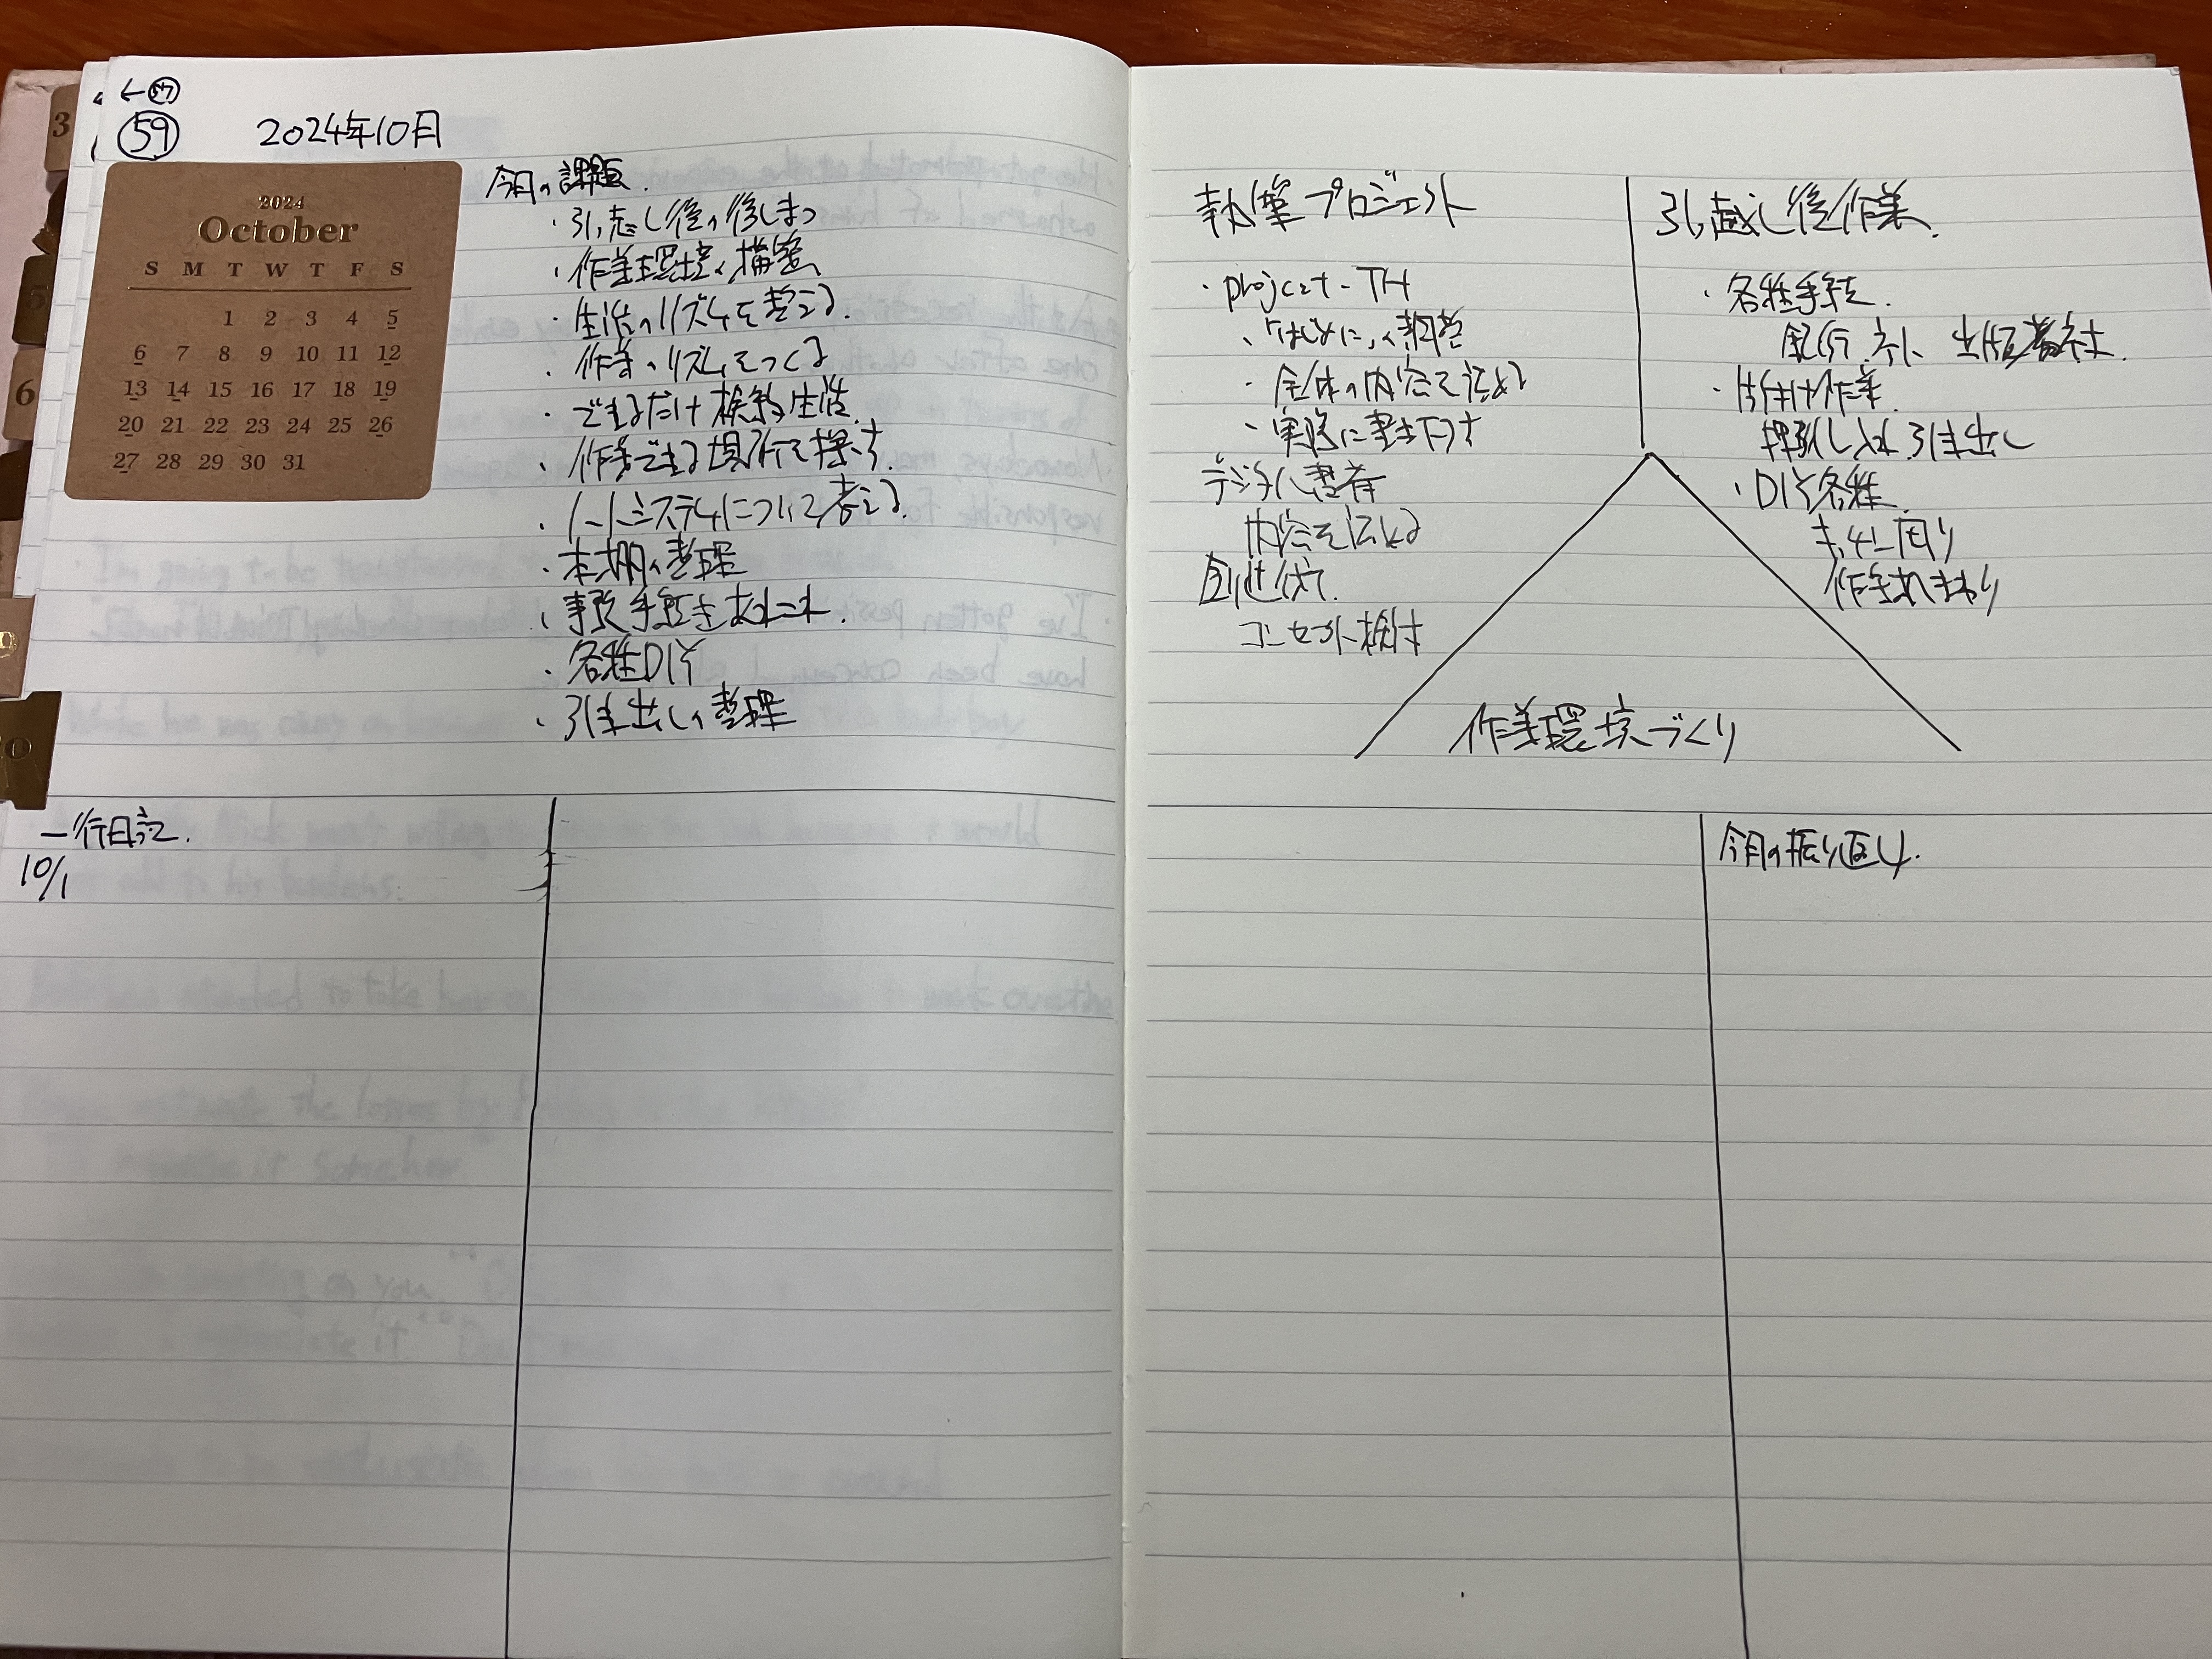 ←57
59
2024年10月
2024
October
S M T W T F S
1 2 3 4 5
6 7 8 9 10 11 12
13 14 15 16 17 18 19
20 21 22 23 24 25 26
27 28 29 30 31
今月の課題.
・引っ越し後の後しまつ
・作業環境の構築
・生活のリズムを整える.
・作業のリズムをつくる
・できるだけ 生活.
・作業できる場所を探す.
・ノートシステムについて考える.
・本棚の整理
・事務手続きあれこれ.
・各種DIY
・引き出しの整理
一行日記.
10/1
執筆プロジェクト
・project-TH
・「はじめに」の
・全体の内容を詰める
・実際に書き下す
デジタル
内容を詰める
コンセプト検討
引っ越し後作業.
・各種手続.
銀行 ネット 出版
・片付け作業.
押し入れ 引き出し
・DIY各種.
まわり
作業環境づくり
今月の振り返し.
3
5
6